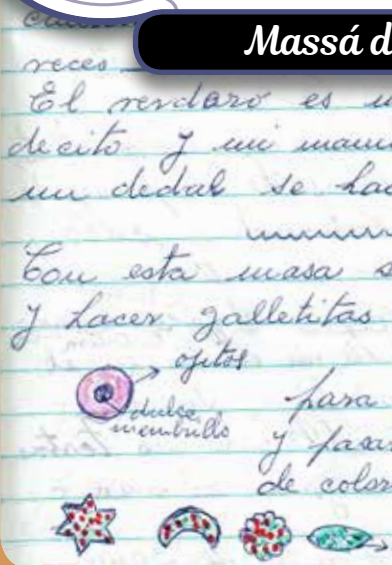 Massá d
reces
El es u
decito y mi mam
un dedal se ha
Con esta masa s
y hacer galletitas
ojitos
dulce
membrillo
para
y pasar
de color